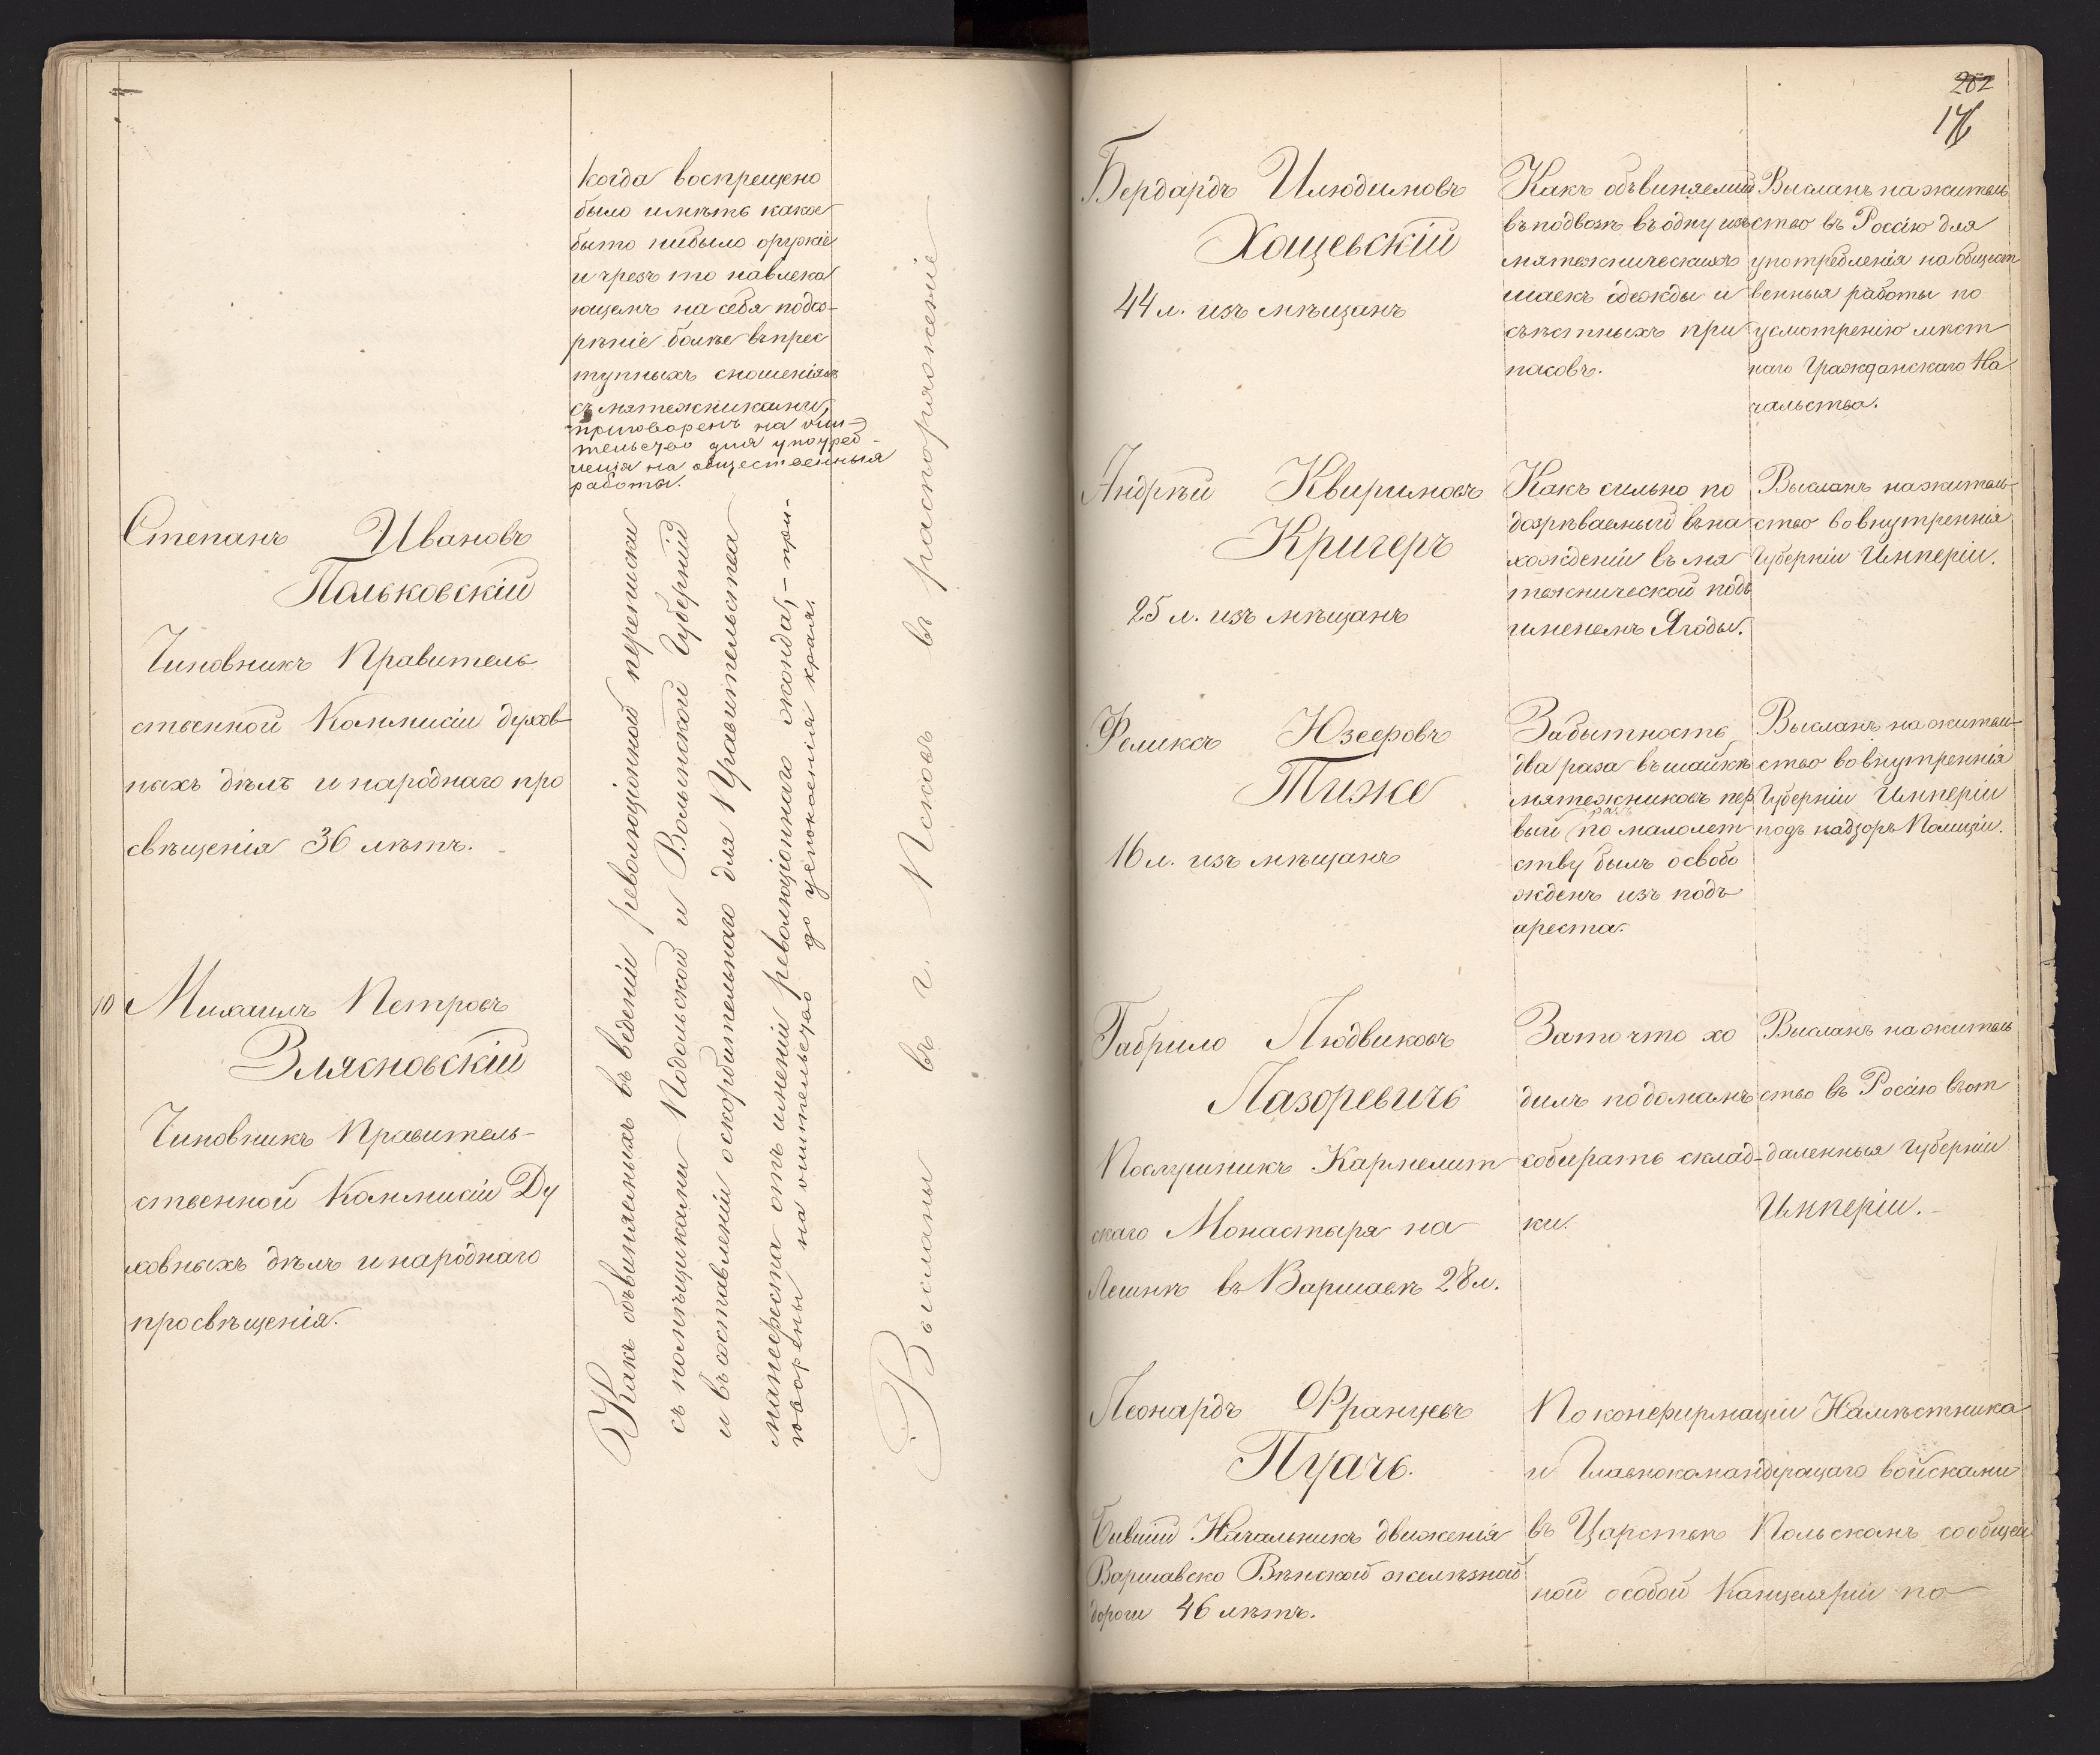 когда воспрещено
было имѣть какое
бы то нибыло оружіе
и чрезъ то навлека
ющемъ на себя подоз-
рѣніе болѣе въ прес
тупныхъ сношеніяхъ
съ мятежниками,
приговоренъ на жи-
тельство для употреб-
ленія на общественныя
работы.
Степанъ Ивановъ
Польковскій
Чиновникъ Правитель
ственной Коммисіи духов-
ныхъ дѣлъ и народнаго про
свѣщенія 36 лѣтъ.
10 Михаилъ Петровъ
Злясновскій
Чиновникъ Правитель-
ственной Коммисіи Ду
ховныхъ дѣлъ и народнаго
просвѣщенія.
Какъ объвиняемыхъ въ веденіи революціонной переписки
съ помѣщиками Подольской и Волынской Губерній
и въ составленіи оскорбительнаго для Правительства
манифеста отъ имени революціоннаго жонда, – при-
говорены на жительство до успокоенія края.
Высланы въ г. Псковъ въ распоряженіе
202
176
Бердардъ Илюдиновъ
Хощевскій
44 л. изъ мѣщанъ
Какъ объвиняемый
въ подвозѣ въ одну изъ
мятежническихъ
шаекъ одежды и
съѣстныхъ при
пасовъ.
Высланъ на житель
ство въ Россію для
употребленія на общест
венныя работы по
усмотренію мѣст
наго Гражданскаго На
чальства.
Андрѣй Квириновъ
Кригеръ
25 л. изъ мѣщанъ
Какъ сильно по
дозрѣваемый въ на
хожденіи въ мя
тежнической подъ
именемъ Ягоды.
Высланъ на житель-
ство во внутреннія
Губерніи Имперіи.
Феликсъ Юзефовъ
Тиже
16 л. изъ мѣщанъ
За бытность
два раза въ шайкѣ
мятежниковъ пер
вый разъ по малолет
ству былъ освобо
жденъ изъ подъ
ареста.
Высланъ на житель-
ство во внутреннія
Губерніи Имперіи
подъ надзоръ Полиціи.
Габрило Людвиковъ
Лазоревичъ
Послушникъ Кармелит
скаго Монастыря на
Лешнѣ въ Варшавѣ 28 л.
За то что хо
дилъ по домамъ
собирать склад-
ки.
Высланъ на житель
ство въ Россію въ от
даленныя Губерніи
Имперіи.
Леонардъ Францевъ
Пуачъ.
Бывшій Начальникъ движенія
Варшавско Вѣнской желѣзной
дороги 46 лѣтъ.
По конфирмаціи Намѣстника
и Главнокомандіращаго войсками
въ Царствѣ Польскомъ сообщен
ной особой Канцеляріи по